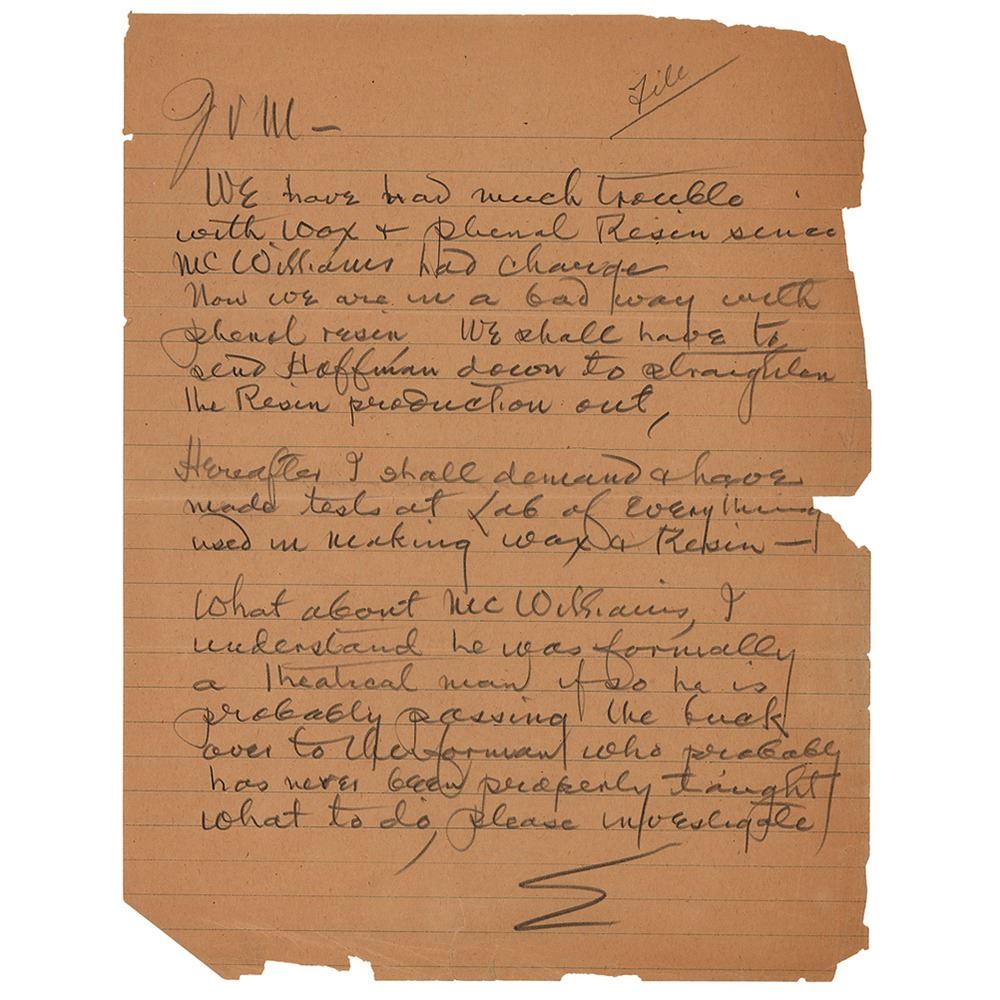 File
J V M –
We have had much trouble
with wax + phenol Resin since
McWilliams had charge
Now we are in a bad way with
phenol resin We shall have to
send Hoffman down to straighten
the Resin production out,
Hereafter I shall demand & have
made tests at Lab of Everything
used in making wax & Resin —
What about McWilliams, I
understand he was formally
a theatrical man if so he is
probably passing the buck
over to the forman who probably
has never been properly taught
what to do, please investigate
E